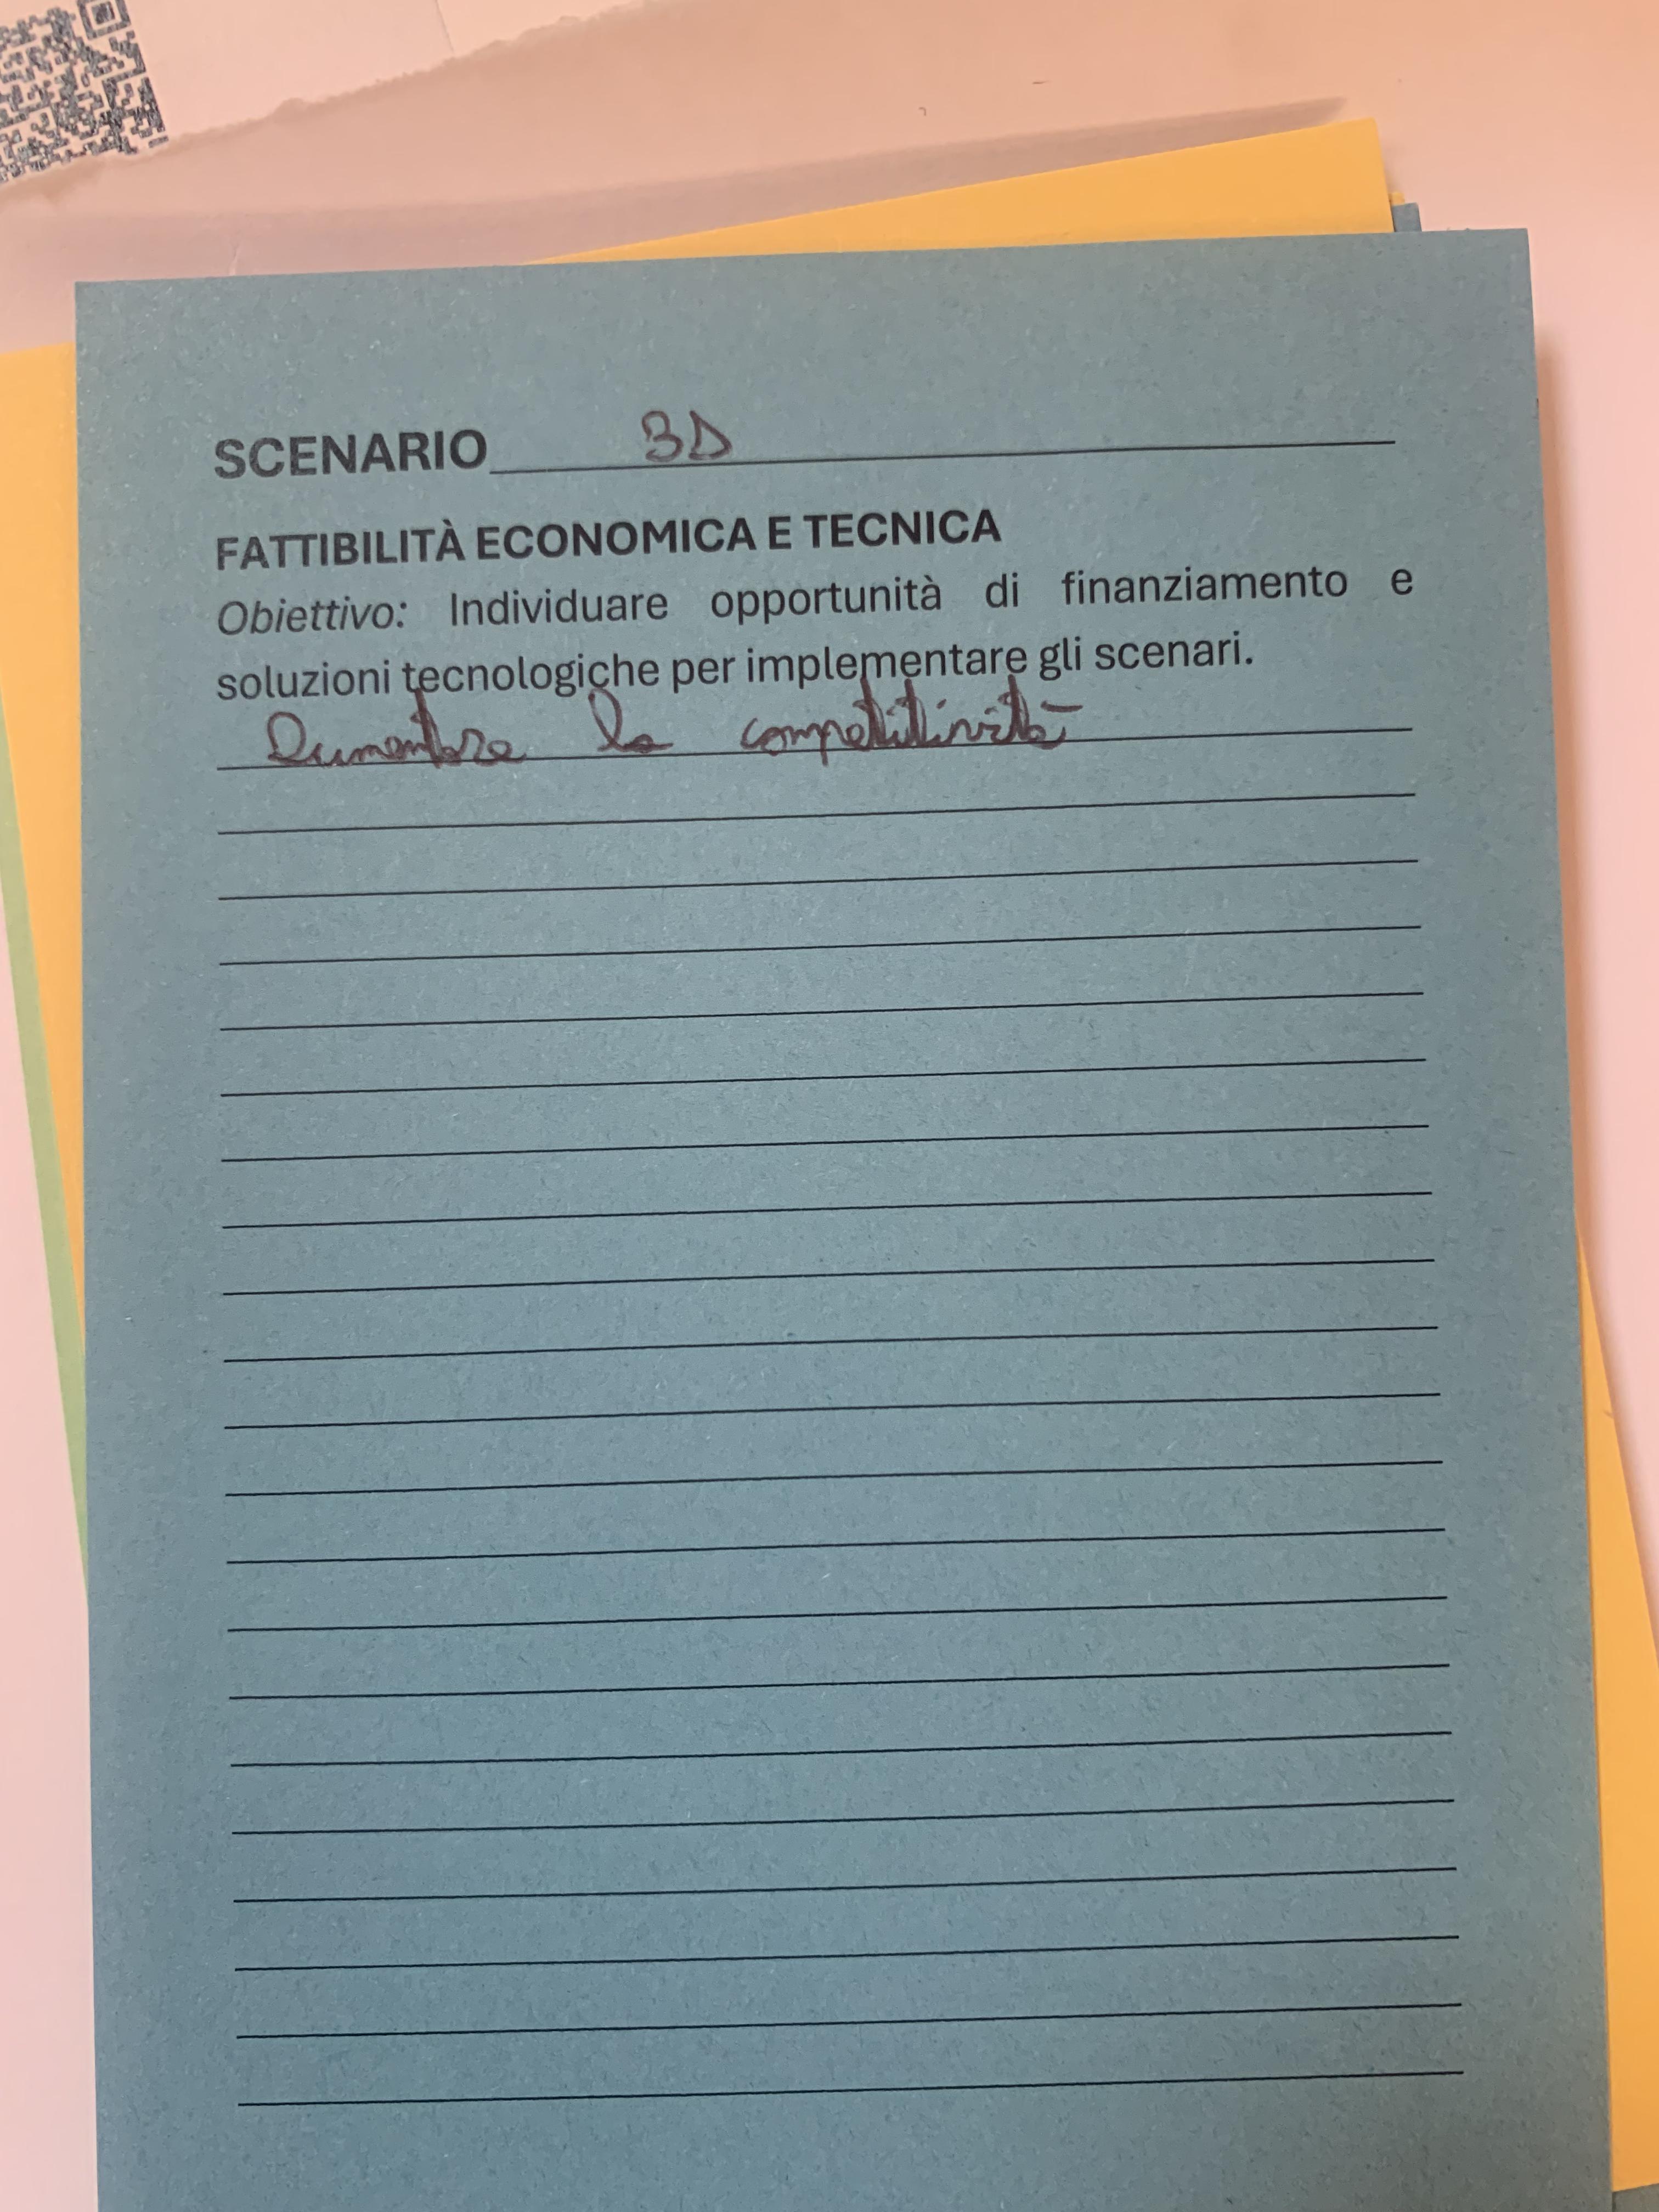 SCENARIO 3D
FATTIBILITÀ ECONOMICA E TECNICA
Obiettivo: Individuare opportunità di finanziamento e
soluzioni tecnologiche per implementare gli scenari.
Aumentare la competitività